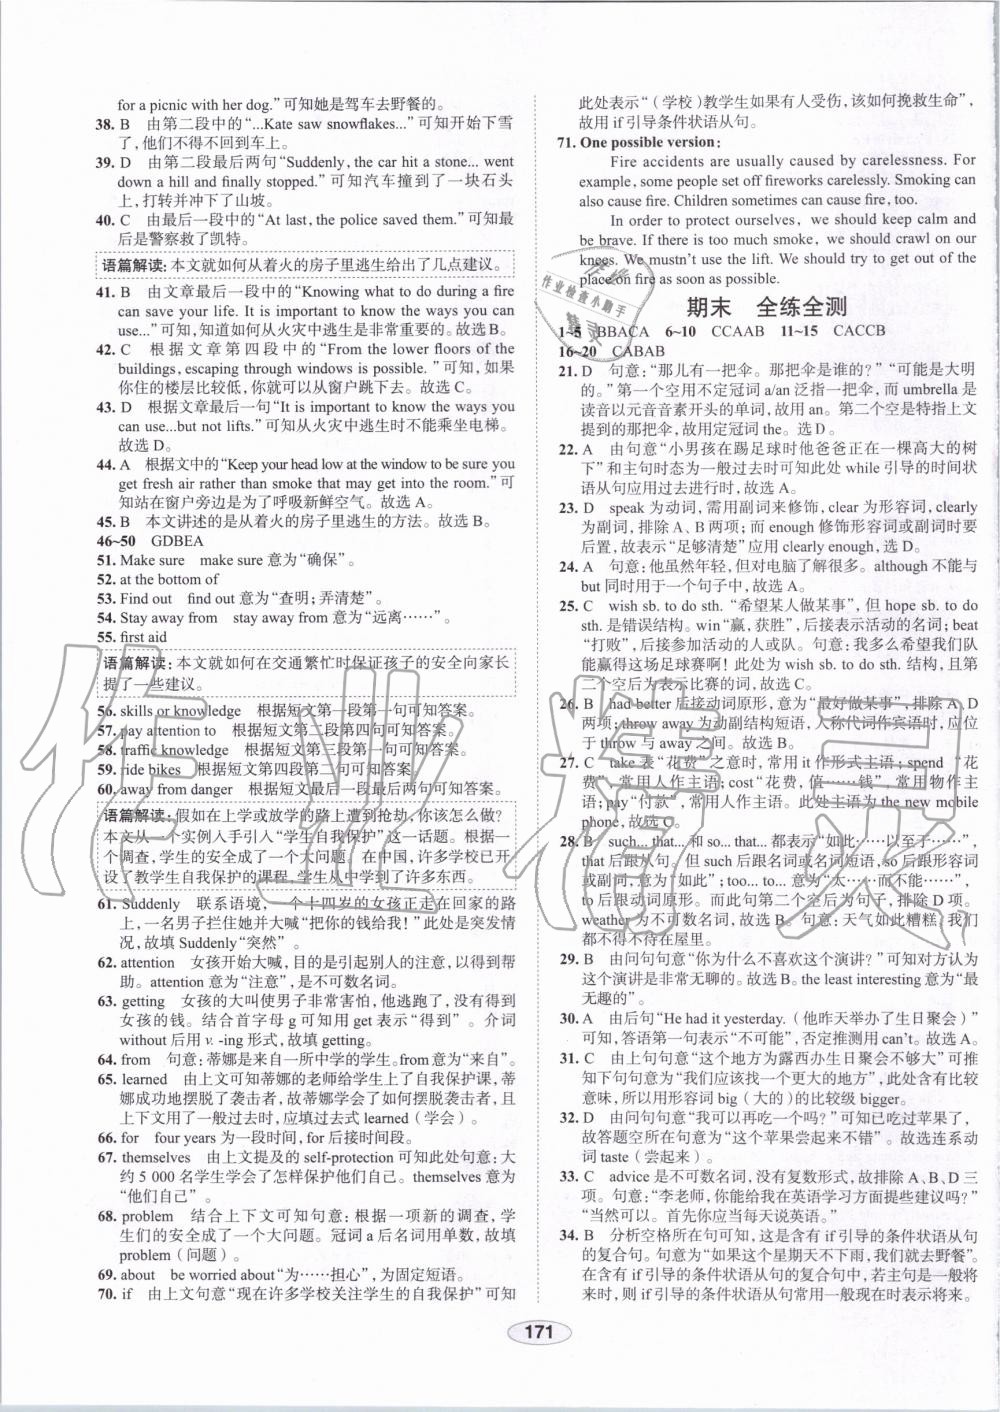 for a picnic with her dog.”可知她是驾车去野餐的。
38. B 由第二段中的“...Kate saw snowflakes...”可知开始下雪
了,他们不得不回到车上。
39. D 由第二段最后两句“Suddenly, the car hit a stone... went
down a hill and finally stopped.”可知汽车撞到了一块石头
上,打转并冲下了山坡。
40. C 由最后一段中的“At last, the police saved them.”可知最
后是警察救了凯特。
语篇解读:本文就如何从着火的房子里逃生给出了几点建议。
41. B 由文章最后一段中的“Knowing what to do during a fire
can save your life. It is important to know the ways you can
use...”可知,知道如何从火灾中逃生是非常重要的。故选B。
42. C 根据文章第四段中的“From the lower floors of the
buildings, escaping through windows is possible.”可知,如果
你住的楼层比较低,你就可以从窗户跳下去。故选C。
43. D 根据文章最后一句“It is important to know the ways you
can use...but not lifts.”可知从火灾中逃生时不能乘坐电梯。
故选D。
44. A 根据文中的“Keep your head low at the window to be sure you
get fresh air rather than smoke that may get into the room.”可
知站在窗户旁边是为了呼吸新鲜空气。故选A。
45. B 本文讲述的是从着火的房子里逃生的方法。故选B。
46~50 GDBEA
51. Make sure make sure 意为“确保”。
52. at the bottom of
53. Find out find out 意为“查明;弄清楚”。
54. Stay away from stay away from 意为“远离……”。
55. first aid
语篇解读:本文就如何在交通繁忙时保证孩子的安全向家长
提了一些建议。
56. skills or knowledge 根据短文第一段第一句可知答案。
57. pay attention to 根据短文第二段第四句可知答案。
58. traffic knowledge 根据短文第三段第一句可知答案。
59. ride bikes 根据短文第四段第二句可知答案。
60. away from danger 根据短文最后一段最后一句可知答案。
语篇解读:假如在上学或放学的路上遭到抢劫,你该怎么做?
本文从一个实例入手引入“学生自我保护”这一话题。根据一
个调查,学生的安全成了一个大问题。在中国,许多学校已开
设了教学生自我保护的课程,学生从中学到了许多东西。
61. Suddenly 联系语境,一个十四岁的女孩正走在回家的路
上,一名男子拦住她并大喊“把你的钱给我!”此处是突发情
况,故填 Suddenly“突然”。
62. attention 女孩开始大喊,目的是引起别人的注意,以得到帮
助。attention 意为“注意”,是不可数名词。
63. getting 女孩的大叫使男子非常害怕,他逃跑了,没有得到
女孩的钱。结合首字母 g 可知用 get 表示“得到”。介词
without 后用 v. -ing 形式,故填 getting。
64. from 句意:蒂娜是来自一所中学的学生。from 意为“来自”。
65. learned 由上文可知蒂娜的老师给学生上了自我保护课,蒂
娜成功地摆脱了袭击者,故蒂娜学会了如何摆脱袭击者,且
上下文用了一般过去式,应填过去式 learned(学会)。
66. for four years 为一段时间,for 后接时间段。
67. themselves 由上文提及的 self-protection 可知此处句意:大
约 5 000 名学生学会了怎样保护他们自己。themselves 意为
“他们自己”。
68. problem 结合上下文可知句意:根据一项新的调查,学
生们的安全成了一个大问题。冠词 a 后名词用单数,故填
problem(问题)。
69. about be worried about“为……担心”,为固定短语。
70. if 由上文句意“现在许多学校关注学生的自我保护”可知
此处表示“(学校)教学生如果有人受伤,该如何挽救生命”,
故用 if 引导条件状语从句。
71. One possible version:
Fire accidents are usually caused by carelessness. For
example, some people set off fireworks carelessly. Smoking can
also cause fire. Children sometimes can cause fire, too.
In order to protect ourselves, we should keep calm and
be brave. If there is too much smoke, we should crawl on our
knees. We mustn’t use the lift. We should try to leave the
place on fire as soon as possible.
期末 全练全测
1~5 BBACA 6~10 CCAAB 11~15 CACCB
16~20 CABAB
21. D 句意:“那儿有一把伞。那把伞是谁的?”“可能是大明
的。”第一个空用不定冠词 a/an 泛指一把伞,而 umbrella 是
读音以元音音素开头的单词,故用 an。第二个空是特指上文
提到的那把伞,故用定冠词 the。选 D。
22. A 由句意“小男孩在踢足球时他爸爸正在一棵高大的树
下”和主句时态为一般过去时可知此处 while 引导的时间状
语从句应用过去进行时,故选 A。
23. D speak 为动词,需用副词来修饰,clear 为形容词,clearly
为副词,排除 A、B 两项;而 enough 修饰形容词或副词时要
后置,故表示“足够清楚”应用 clearly enough,选 D。
24. A 句意:他虽然年轻,但对电脑了解很多。although 不能与
but 同时用于一个句子中,故选 A。
25. C wish sb. to do sth.“希望某人做某事”,但 hope sb. to do
sth. 是错误结构。win“赢,获胜”,后接表示活动的名词;beat
“打败”,后接参加活动的人或队。句意:我多么希望我们队
能赢得这场足球赛啊!此处为 wish sb. to do sth. 结构,且第
二个空后为表示比赛的词,故选 C。
26. B had better 后接动词原形,意为“最好做某事”,排除 A、D
两项;throw away 为动副结构短语,人称代词作宾语时,应位
于 throw 与 away 之间。故选 B。
27. C take 表“花费”之意时,常用 it 作形式主语;spend “花
费”,常用人作主语;cost“花费,值……钱”,常用物作主
语;pay“付款”,常用人作主语。此处主语为 the new mobile
phone,故选 C。
28. B such... that... 和 so... that... 都表示“如此……以至于……”,
that 后跟从句。但 such 后跟名词或名词短语,so 后跟形容词
或副词,意为“如此”;too... to... 意为“太……而不能……”,
to 后跟动词原形。而此句第二个空后为句子,排除 D 项。
weather 为不可数名词,故选 B。句意:天气如此糟糕,我们
都不得不待在屋里。
29. B 由问句句意“你为什么不喜欢这个演讲?”可知对方认为
这个演讲是非常无聊的。故选 B。the least interesting 意为“最
无趣的”。
30. A 由后句“He had it yesterday.(他昨天举办了生日聚会)”
可知,答语第一句表示“不可能”,否定推测用 can’t。故选 A。
31. C 由上句句意“这个地方为露西办生日聚会不够大”可推
知下句句意为“我们应该找一个更大的地方”,此处含有比较
意味,所以用形容词 big(大的)的比较级 bigger。
32. D 由问句句意“我可以再吃一个吗?”可知已过苹果了,
故答题空所在句意为“这个苹果尝起来不错”。故选连系动
词 taste(尝起来)。
33. C advice 是不可数名词,没有复数形式,故排除 A、B、D 三
项。句意:“李老师,你能给我在英语学习方面提些建议吗?”
“当然可以。首先你应当每天说英语。”
34. B 分析空格所在句可知,这是含有 if 引导的条件状语从句
的复合句。句意为“如果这个星期天不下雨,我们就去野餐”。
在含有 if 引导的条件状语从句的复合句中,若主句是一般将
来时,则 if 引导的条件状语从句常用一般现在时表示将来。
171